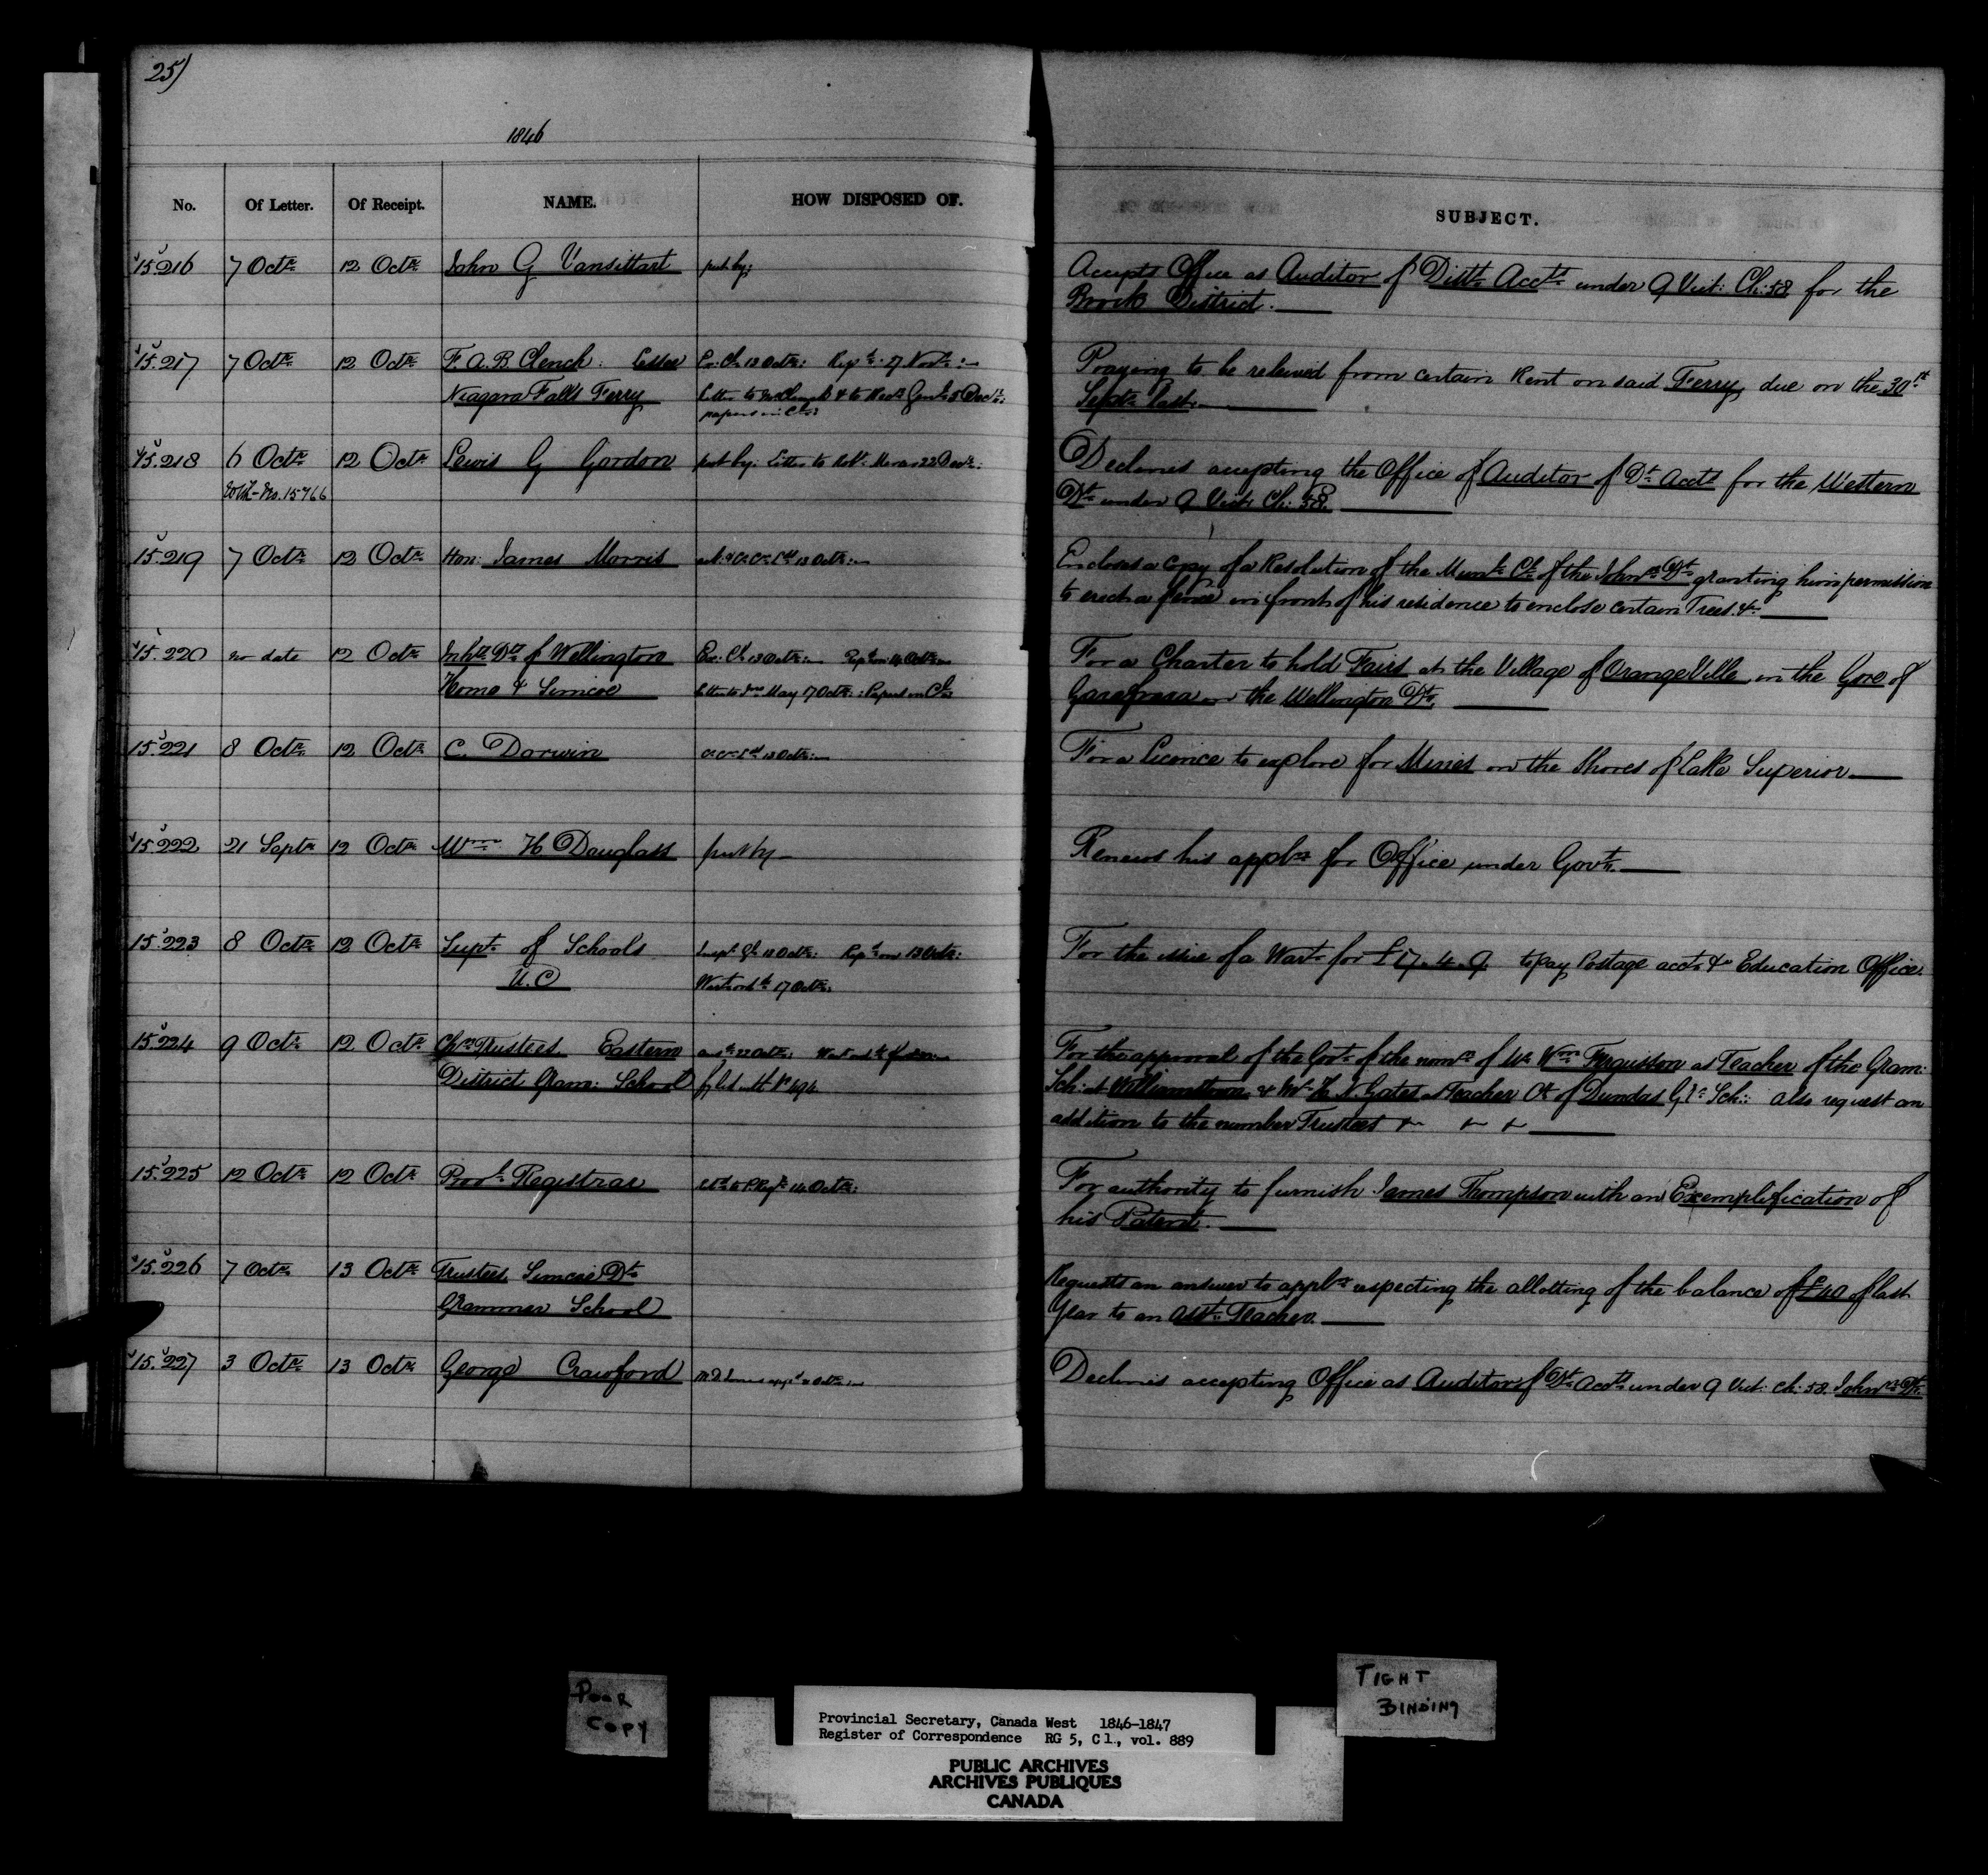 25)
1846
No. Of Letter. Of Receipt. NAME. HOW DISPOSED OF. SUBJECT.
15.216 7 Octr 12 Octr John G Vansittart put by: Accepts Office as Auditor of Distt Accts under 9 Vict: Ch: 58 for the
Brock District.
15.217 7 Octr 12 Octr F. A. B. Clench: Lessee Ex: Cl 13 Octr: Repd 27 Novr: Praying to be relieved from certain Rent on said Ferry, due on the 30th
Niagara Falls Ferry Letter to Mr Clench & to Recr Genl 5 Decr: Septr last.
papers in
15.218 6 Octr 12 Octr Lewis G Gordon put by: Letter to 22 Decr: Declines accepting the Office of Auditor of Dt Accts for the Western
With No. 15766 Dt under 9 Vict: Ch: 58.
15.219 7 Octr 12 Octr Hon: James Morris 13 Octr: Encloses a copy of a Resolution of the Munl Cl of the Johnn Dt granting him permission
to erect a fence in front of his residence to enclose certain Trees &c
15.220 no date 12 Octr Inhts Dts of Wellington Ex: Cl 13 Octr: Octr For a Charter to hold Fairs at the Village of OrangeVille in the Gore of
Home & Simcoe Letter to May 17 Octr: Papers in Garafraxa in the Wellington Dt.
15.221 8 Octr 12 Octr C. Darwin 13 Octr: For a Licence to explore for Mines on the Shores of Lake Superior
15.222 21 Septr 12 Octr Wm H Douglass put by Renews his appln for Office under Govt.
15.223 8 Octr 12 Octr Supt of Schools Inspr Gl 12 Octr: Repd on 13 Octr: For the issue of a Wart for £17.4.9 to pay Postage acct &c Education Office.
U.C 17 Octr:
15.224 9 Octr 12 Octr Chn Trustees Eastern 22 Octr: For the approval of the Govr of the nomn of Mr Wm Fergusson as Teacher of the Gram:
District Gram: School Sch: at Williamstown, & Mr H. N. Gates as Teacher of Dundas Sch:: also request an
addition to the number Trustees &c &c &c
15.225 12 Octr 12 Octr Provl Registrar 14 Octr: For authority to furnish James Thompson with an Exemplification of
his Patent.
15.226 7 Octr 13 Octr Trustees Simcoe Dt Requests an answer to appln respecting the allotting of the balance of £40 of last
Grammar School Year to an asst: Teacher.
15.227 3 Octr 13 Octr George Crawford Declines accepting Office as Auditor of Dt Accts under 9 Vict: ch: 58. Johnn Dt.
POOR
COPY
TIGHT
BINDING
Provincial Secretary, Canada West 1846-1847
Register of Correspondence RG 5, C1., vol. 889
PUBLIC ARCHIVES
ARCHIVES PUBLIQUES
CANADA